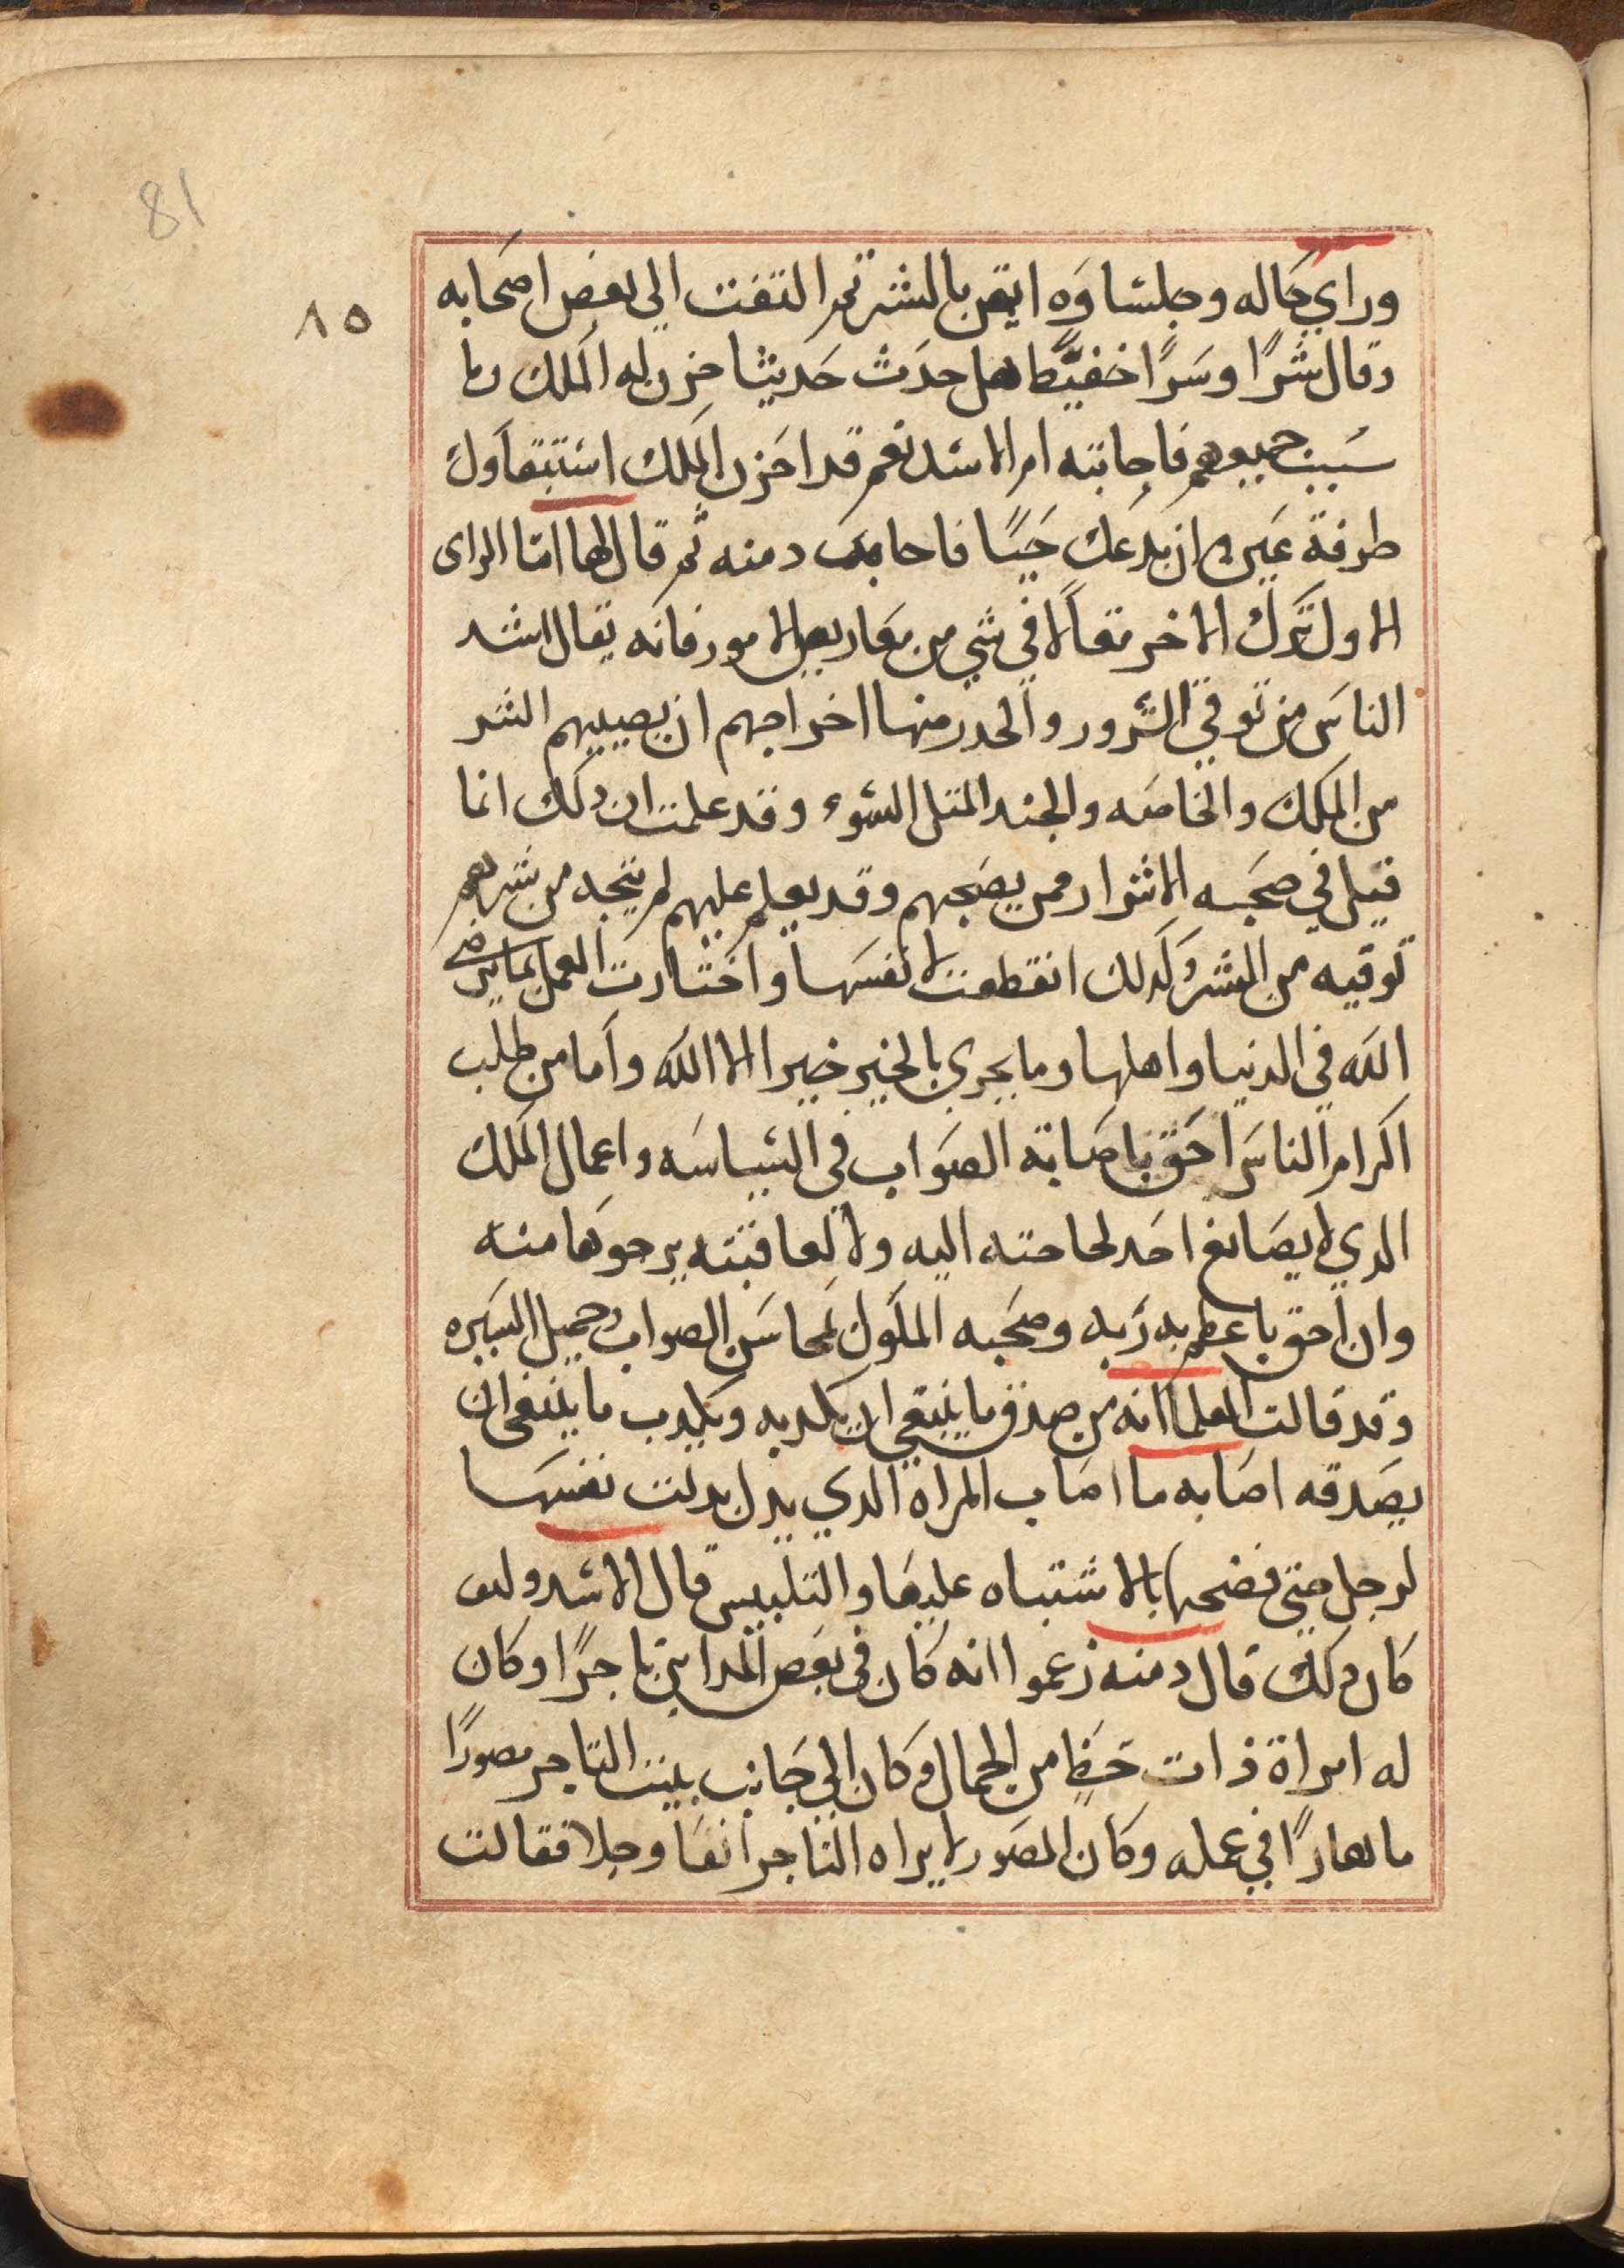 81
٨٥
وراي حاله وجلساوه ايقن بالشر ثم التفت الي بعض اصحابه
وقال شرًا وسرًا خفيًا هل حدث حديثا حزن له الملك وما
سبب جميعهم فاجابته ام الاسد نعم قد احزن الملك استبقاوك
طرفة عين وان يدعك حيًا فاجابت دمنه ثم قال لها اما الراى
الاول ترك الاخر مقالا في شي من معاريض الامور فانه يقال اشد
الناس من توقي الشرور والحدر منها اخراجهم ان يصيبهم الشر
من الملك والخاصه والجند المثل السوء وقد علمت ان دلك انما
قيل في صحبه الاشرار ممن يصحبهم وقد يعلم عليهم لم ينجه من شرهم
توقيه من الشر وكدلك انقطعت لا نفسها واختارت العمل بما يرضي
الله في الدنيا واهلها وما يجري بالخير خيرا الا الله واما من طلب
اكرام الناس احق باصابة الصواب في السياسه واعمال الملك
الدي لا يصانع احد لحاجته اليه ولا لعاقبته يرجوها منه
وان احق با عظم به ربه وصحبه الملوك لمحاسن الصواب وجميل السيره
وقد قالت العلما انه من صدق ما ينبغي ان يكدبه ويكدب ما ينبغي ان
يصدقه اصابه ما اصاب المراه الدي بدل بدلت نفسها
لرجل حتى فضحها بالاشتباه عليها والتلبيس قال الاسد وكيف
كان دلك قال دمنه زعموا انه كان في بعض المداين تاجرًا وكان
له امراة ذات حظٍا من الجمال وكان الي جانب بيت التاجر مصورًا
ماهارًا في عمله وكان المصور لا يراه التاجر انفا وجلا فقالت